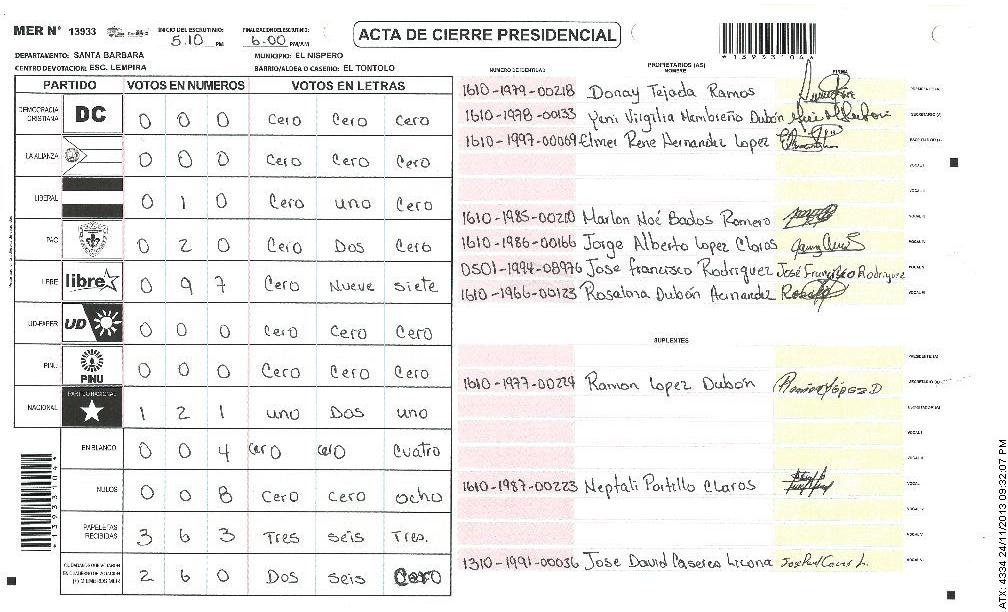 MER N° 13933
INICIO DEL ESCRUTINIO: 5:10 PM
FINALIZACION DEL ESCRUTINIO: 6:00 PM/AM
ACTA DE CIERRE PRESIDENCIAL
*13933104*
DEPARTAMENTO: SANTA BARBARA
MUNICIPIO: EL NISPERO
CENTRO DE VOTACION: ESC. LEMPIRA
BARRIO/ALDEA O CASERIO: EL TONTOLO
PARTIDO VOTOS EN NUMEROS VOTOS EN LETRAS
DEMOCRACIA CRISTIANA DC 0 0 0 Cero Cero Cero
LA ALIANZA 0 0 0 Cero Cero Cero
LIBERAL 0 1 0 Cero uno Cero
PAC 0 2 0 Cero Dos Cero
LIBRE libre 0 9 7 Cero Nueve siete
UD-FAPER UD 0 0 0 Cero Cero Cero
PINU PNU 0 0 0 Cero Cero Cero
NACIONAL PARTIDO NACIONAL 1 2 1 uno Dos uno
EN BLANCO 0 0 4 cero cero cuatro
NULOS 0 0 8 cero cero ocho
PAPELETAS RECIBIDAS 3 6 3 Tres seis Tres.
CIUDADANOS QUE VOTARON EN CUADERNO DE VOTACION (+) MIEMBROS MER 2 6 0 Dos seis Cero
*13933104*
PROPIETARIOS (AS)
NUMERO DE IDENTIDAD NOMBRE FIRMA
1610-1979-00218 Donay Tejada Ramos PRESIDENTE (A)
1610-1978-00133 Yeni Virgilia Membreño Dubón SECRETARIO (A)
1610-1997-00069 Elmer Rene Hernandez Lopez ESCRUTADOR (A)
VOCAL I
VOCAL II
1610-1985-00210 Marlon Noé Bados Romero
1610-1986-00166 Jorge Alberto Lopez Claros
0501-1994-08976 Jose francisco Rodriguez José Francisco Rodriguez
1610-1966-00123 Rosalina Dubón Hernandez
SUPLENTES
PRESIDENTE (A)
1610-1977-00224 Ramon Lopez Dubón Ramon López D SECRETARIO (A)
ESCRUTADOR (A)
VOCAL I
1610-1987-00223 Neptali Portillo Claros
1310-1991-00036 Jose David Caseres Licona
ATX: 4334 24/11/2013 09:32:07 PM